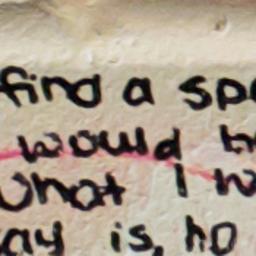 find a spe
would h
what I w
ay is, ho